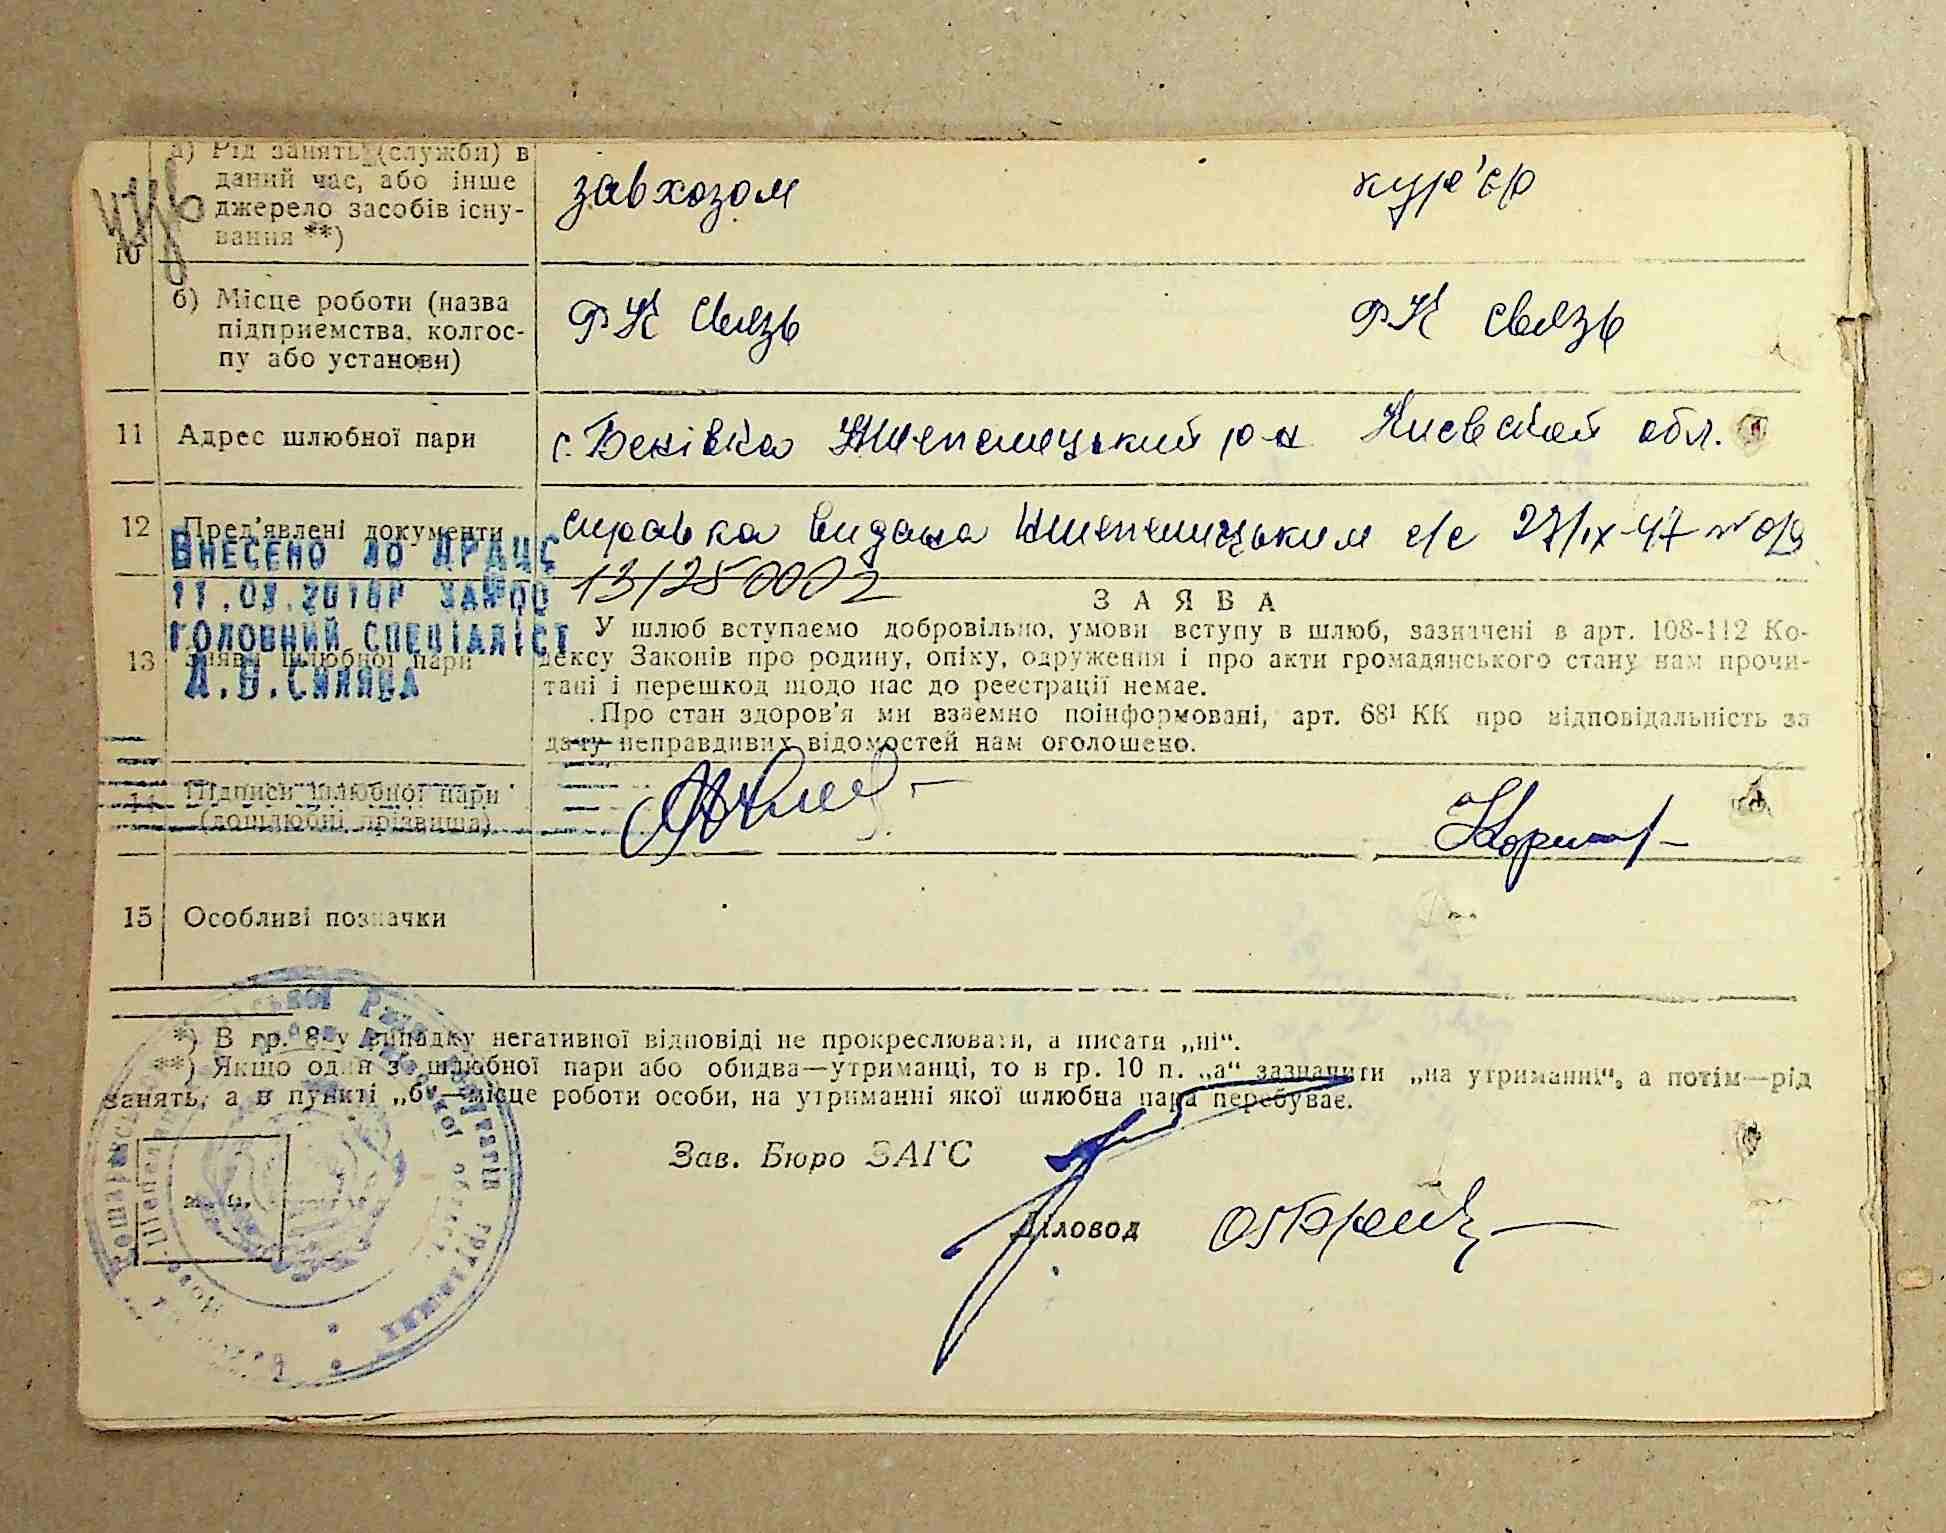 а) Рід занять (служби) в
даний час, або інше
джерело засобів існу-
вання **)
завхозом
кур'єр
10
б) Місце роботи (назва
підприємства, колгос-
пу або установи)
РК Связь
РК Связь
11 Адрес шлюбної пари
обл.
12 Пред'явлені документи
справка видана с/с 27/IX-47
ВНЕСЕНО ДО ДРАЦС
13/250002
ГОЛОВНИЙ СПЕЦІАЛІСТ
13 Заява шлюбної пари
ЗАЯВА
У шлюб вступаємо добровільно, умови вступу в шлюб, зазначені в арт. 108-112 Ко-
дексу Законів про родину, опіку, одруження і про акти громадянського стану нам прочи-
тані і перешкод щодо нас до реєстрації немає.
Про стан здоров'я ми взаємно поінформовані, арт. 68¹ КК про відповідальність за
дачу неправдивих відомостей нам оголошено.
14 Підписи шлюбної пари
(дошлюбні прізвища)
15 Особливі позначки
*) В гр. 8 у випадку негативної відповіді не прокреслювати, а писати „ні“.
**) Якщо один з шлюбної пари або обидва—утриманці, то в гр. 10 п. „а“ зазначити „на утриманні“, а потім—рід
занять, а в пункті „б“—місце роботи особи, на утриманні якої шлюбна пара перебуває.
Зав. Бюро ЗАГС
м. п.
Діловод